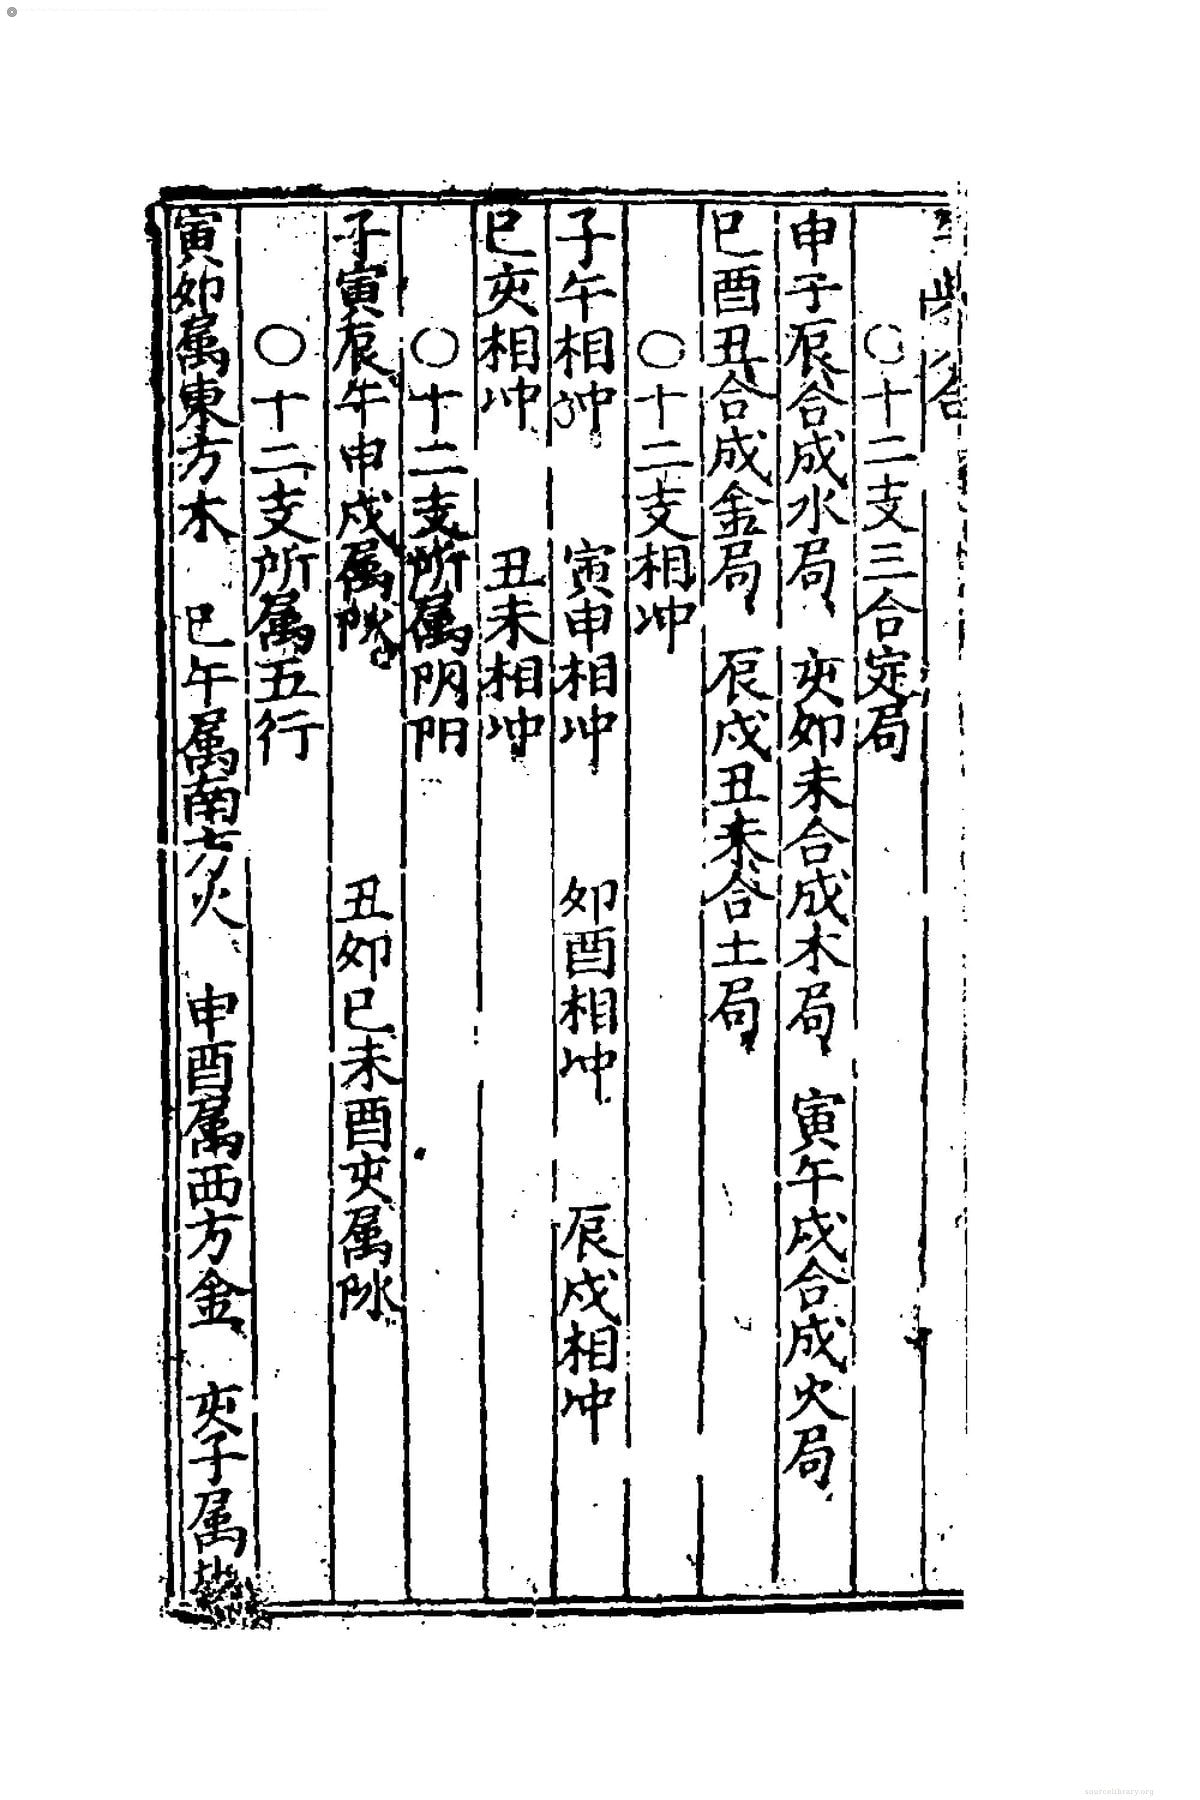 〇十二支三合定局
申子辰合成水局 亥卯未合成木局 寅午戌合成火局
巳酉丑合成金局 辰戌丑未合土局
〇十二支相冲
子午相冲 寅申相冲 卯酉相冲 辰戌相冲
巳亥相冲 丑未相冲
〇十二支所属阴阳
子寅辰午申戌属阳 丑卯巳未酉亥属阴
〇十二支所属五行
寅卯属東方木 巳午属南方火 申酉属西方金 亥子属
sourcelibrary.org